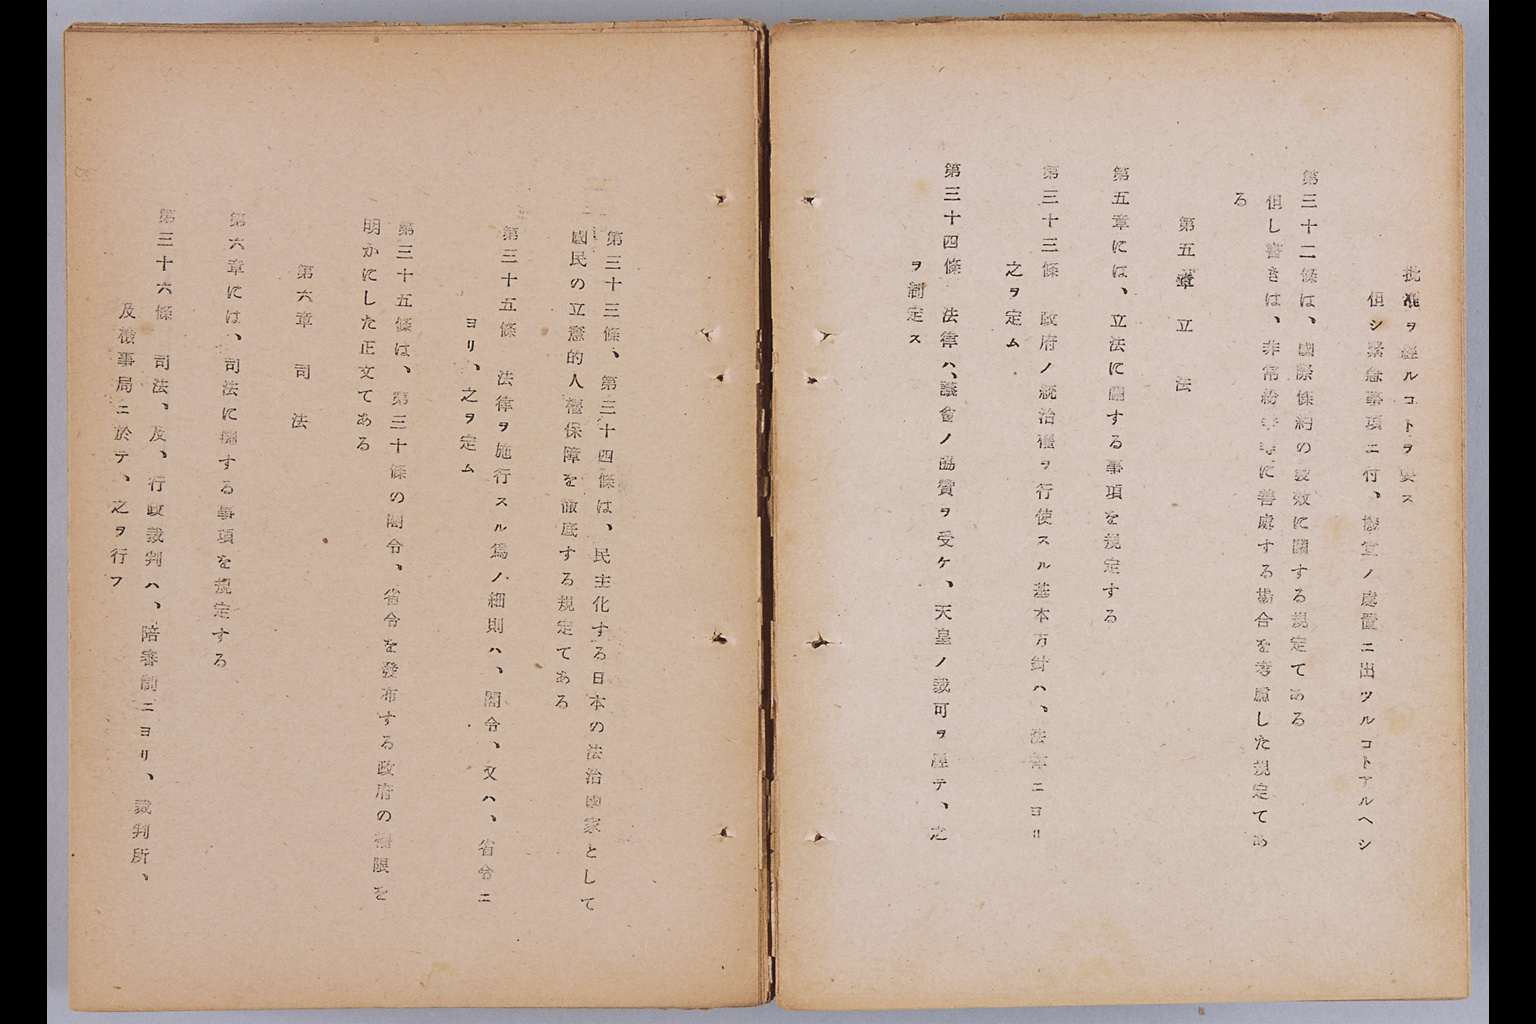 批准ヲ經ルコトヲ要ス
但シ緊急事項ニ付、ノ處置ニ出ツルコトアルヘシ
第三十二條は、國際條約の發效に關する規定てある
但し書きは、非常紛爭等に善處する場合を考慮した規定てあ
る
第五章 立法
第五章には、立法に關する事項を規定する
第三十三條 政府ノ統治權ヲ行使スル基本方針ハ、法律ニヨリ
之ヲ定ム
第三十四條 法律ハ、議會ノ協賛ヲ受ケ、天皇ノ裁可ヲ經テ、之
ヲ制定ス
第三十三條、第三十四條は、民主化する日本の法治國家として
國民の立憲的人權保障を徹底する規定てある
第三十五條 法律ヲ施行スル爲ノ細則ハ、閣令、又ハ、省令ニ
ヨリ、之ヲ定ム
第三十五條は、第三十條の閣令、省令を發布する政府の權限を
明かにした正文てある
第六章 司法
第六章には、司法に關する事項を規定する
第三十六條 司法、及、行政裁判ハ、陪審制ニヨリ、裁判所、
及檢事局ニ於テ、之ヲ行フ